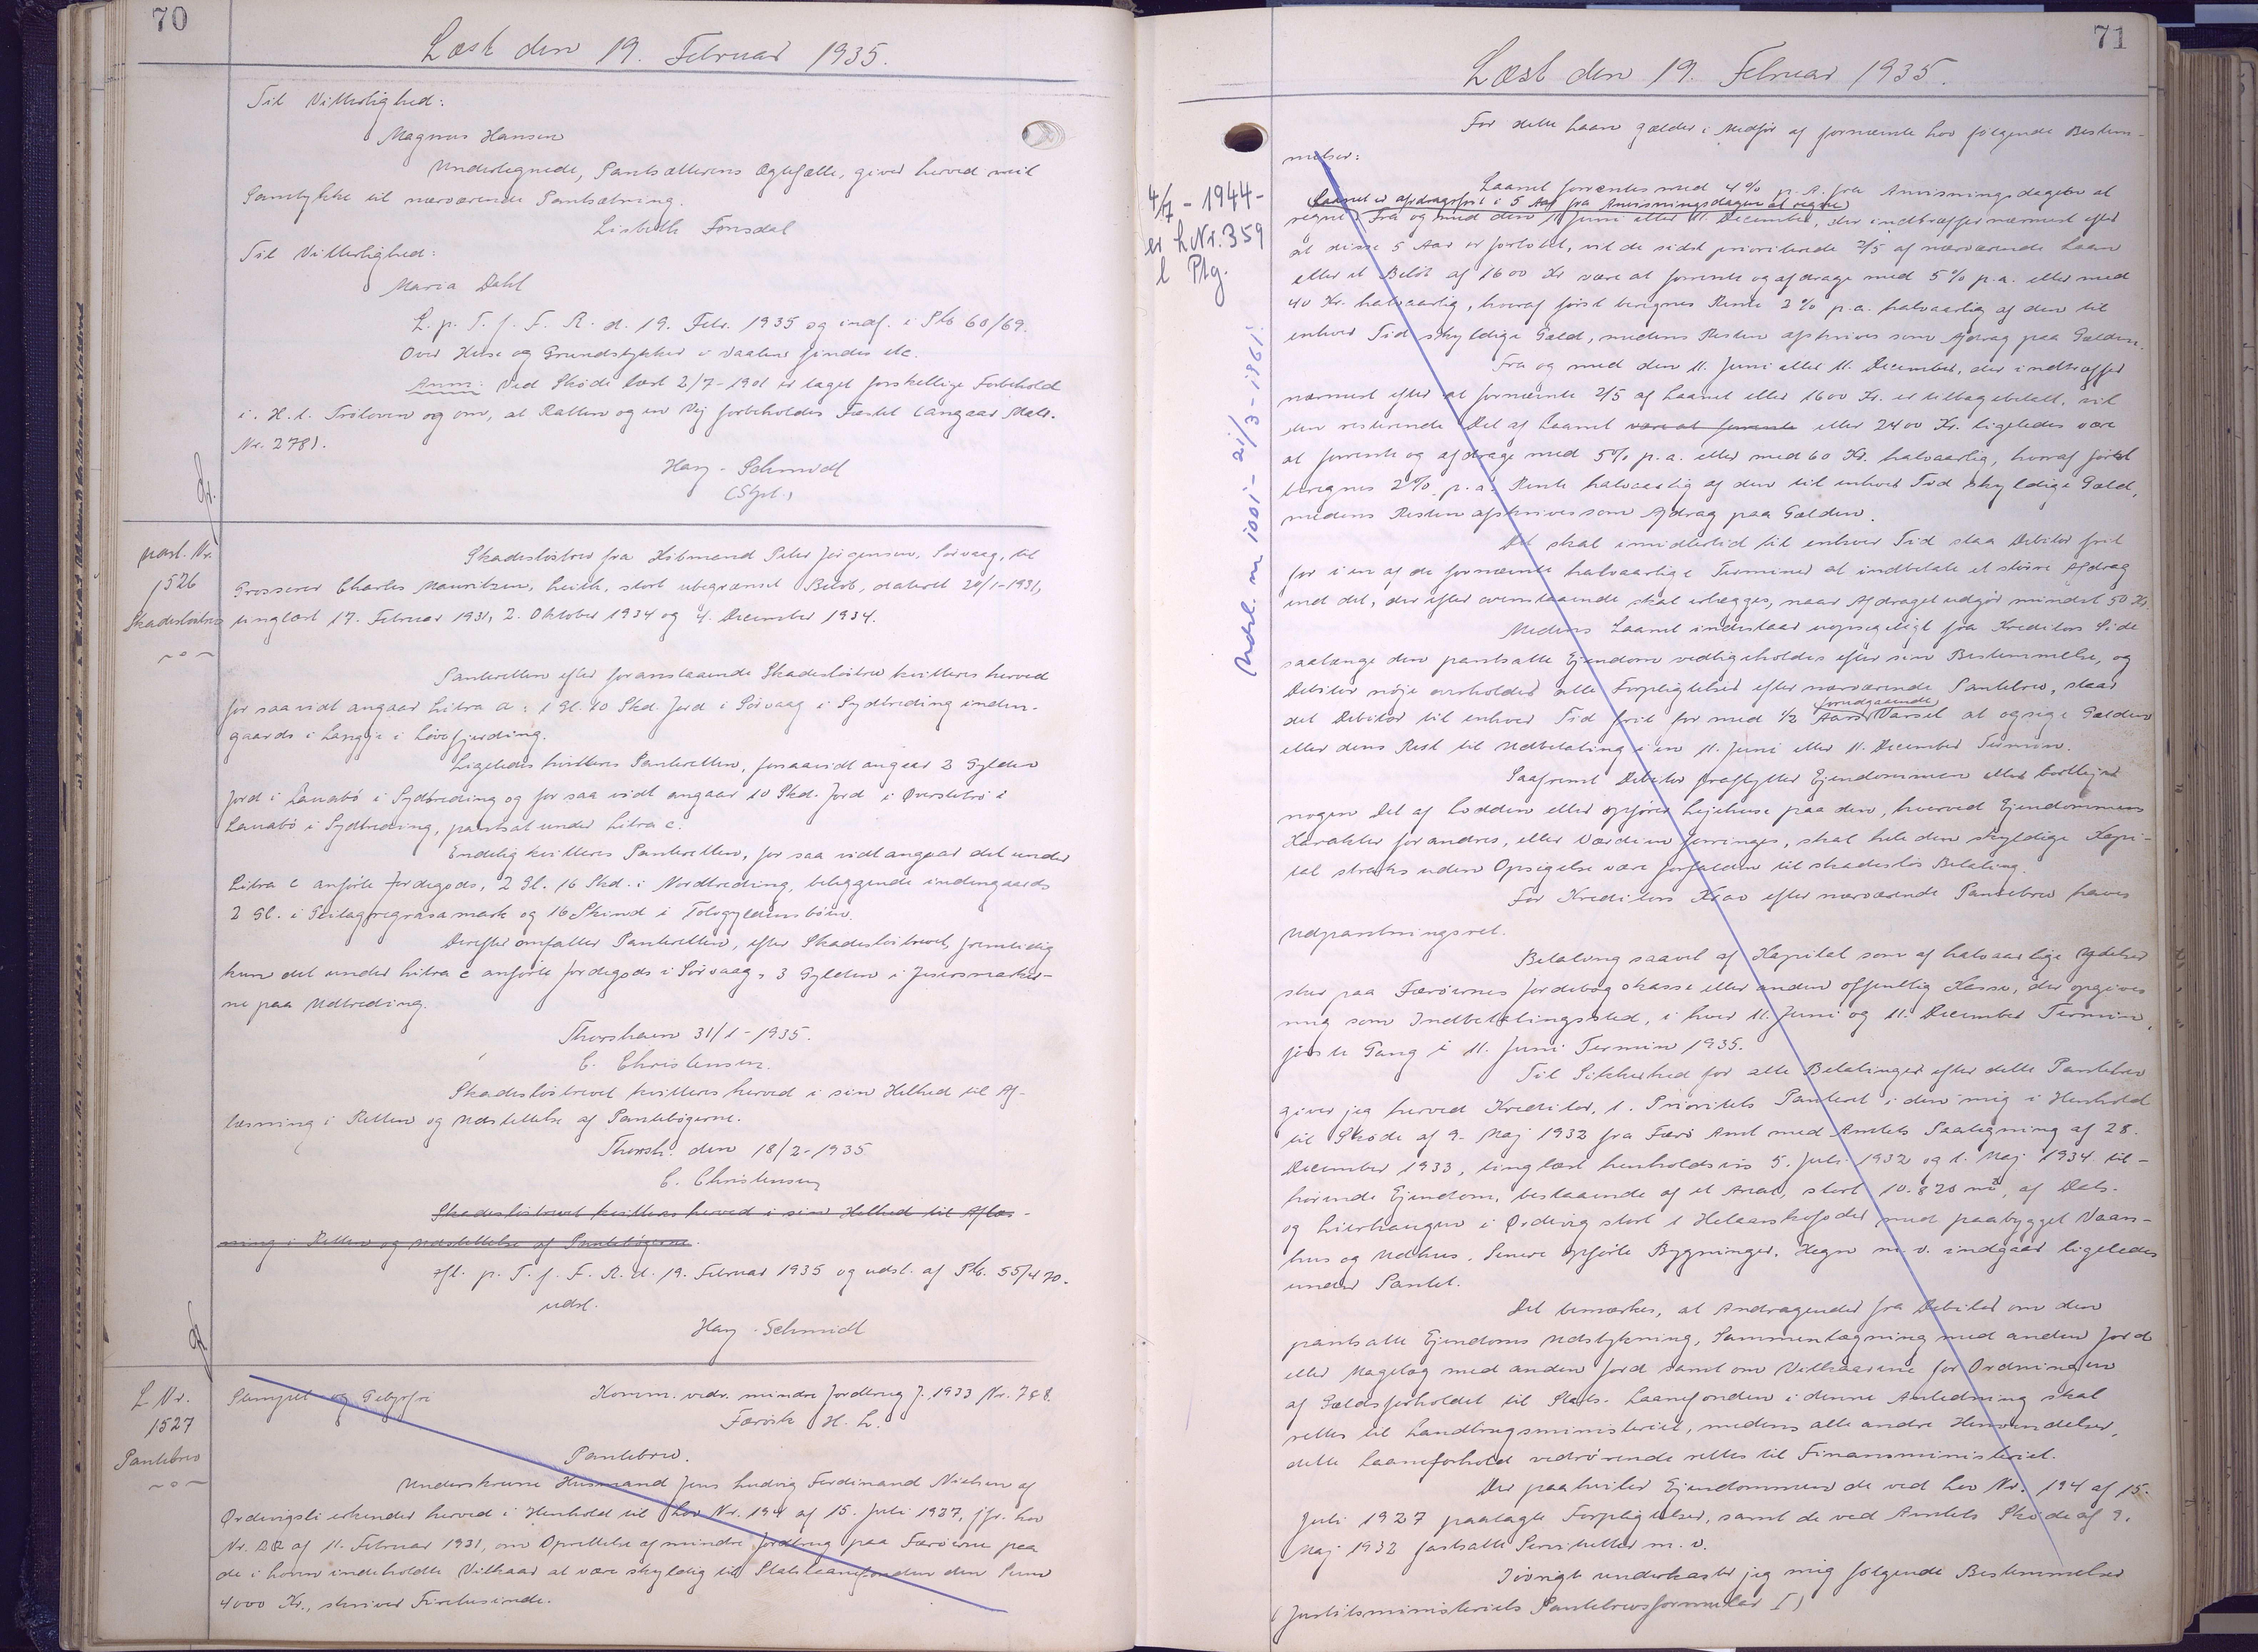 70
Læst den 19. Februar 1935.
Til Vitterlighed:
Magnus Hansen
Undertegnede, Pantsætterens Ægtefælle, giver herved mit
Samtykke til nærværende Pantsætning.
Lisbeth Fonsdal
Til Vitterlighed:
Maria Dahl
L. p. T. f. F. R. d. 19. Febr. 1935 og indf. i Pb 60/69.
Over Huse og Grundstykker i Vaalur findes etc.
Anm: Ved Skøde læst 2/7-1901 er taget forskellige Forbehold
i. H. t. Træloven og om, at Retten og en Vej forbeholdes Fæstet (angaar Matr.
Nr. 278).
Hary-Schmidt
(Styl.)
part. Nr.
1526
Skadesløsbrev
Skadesløsbrev fra Købmand Peter Jørgensen, Sørvaag, til
Grosserer Charles Mauritzen, Leith, stort ubegrænset Beløb, dateret 20/1-1931,
tinglæst 17. Februar 1931, 2. Oktober 1934 og 4. December 1934.
Panteretten efter foranstaaende Skadesløsbrev kvitteres herved
for saavidt angaar Litra a: 1 Gl. 10 Skd. Jord i Sørvaag i Sydtreding inden-
gaards i
Ligeledes kvitteres Panteretten, forsaavidt angaar 2 Gylden
Jord i Lauabø i Sydtreding og for saa vidt angaar 10 Skd. Jord i
Lauabø i Sydtreding, pantsat under Litra c.
Endelig kvitteres Panteretten, for saa vidt angaar det under
Litra c anførte Jordegods, 2 Gl. 16 Skd. i Nordtreding, beliggende indengaards
2 Gl. i mark og 16 Skind i
Derefter omfatter Panteretten, efter Skadesløsbrevet, fremtidig
kun det under Litra c anførte Jordegods i Sørvaag, 3 Gylden i
ne paa Udtreding.
Thorshavn 31/1-1935.
C. Christensen.
Skadesløsbrevet kvitteres herved i sin Helhed til Af-
læsning i Retten og Udslettelse af Pantebøgerne.
Thorsh. den 18/2-1935
C. Christensen
Skadesløsbrevet kvitteres herved i sin Helhed til Aflæs-
ning i Retten og Udslettelse af Pantebøgerne.
Afl. p. T. f. F. R. d. 19. Februar 1935 og udsl. af Pb. 55/470.
udsl.
Hary-Schmidt
L. Nr.
1527
Pantebrev
Stempel og Gebyrfri
Komm. vedr. mindre Jordbrug J. 1933 Nr. 788.
Færøsk H. L.
Pantebrev.
Underskrevne Husmand Jens Ludvig Ferdinand Nielsen af
Ørdevigsli erkender herved i Henhold til Lov Nr. 194 af 15. Juli 1927, jfr. Lov
Nr. 22 af 11. Februar 1931, om Oprettelse af mindre Jordbrug paa Færøerne paa
de i Loven indeholdte Vilkaar at være skyldig til Statslaanefonden den Sum
4000 Kr., skriver Firetusinde.
71
Læst den 19. Februar 1935.
For dette Laan gælder i Medfør af fornævnte Lov følgende Bestem-
melser:
Laanet forrentes med 4% p. A. fra Anvisningsdagen at
Laanet er afdragsfrit i 5 Aar fra Anvisningsdagen at regne
regne. Fra og med den 11. Juni eller 11. December, der indtræffer nærmest efter
at disse 5 Aar er forløbet, vil de sidst prioriterede 2/5 af nærværende Laan
eller et Beløb af 1600 Kr. være at forrente og afdrage med 5% p.a. eller med
40 Kr. halvaarlig, hvoraf først beregnes Rente 2% p.a. halvaarlig af den til
enhver Tid skyldige Gæld, medens Resten afskrives som Afdrag paa Gælden.
Fra og med den 11. Juni eller 11. December, der indtræffer
nærmest efter at fornævnte 2/5 af Laanet eller 1600 Kr. er tilbagebetalt, vil
den resterende Del af Laanet være at forrente eller 2400 Kr. ligeledes være
at forrente og afdrage med 5% p.a. eller med 60 Kr. halvaarlig, hvoraf først
beregnes 2% p.a. Rente halvaarlig af den til enhver Tid skyldige Gæld,
medens Resten afskrives som Afdrag paa Gælden.
Det skal imidlertid til enhver Tid staa Debitor frit
for i en af de fornævnte halvaarlige Terminer at indbetale et større Afdrag
end det, der efter ovenstaaende skal erlægges, naar Afdraget udgør mindst 50 Kr.
Medens Laanet indestaar uopsigeligt fra Kreditors Side
saalænge den pantsatte Ejendom vedligeholdes efter sin Bestemmelse, og
Debitor nøje overholder alle Forpligtelser efter nærværende Pantebrev, staar
det Debitor til enhver Tid frit for med 1/2 Aars forudgaaende Varsel at opsige Gælden
eller dens Rest til Udbetaling i en 11. Juni eller 11. December Termin.
Saafremt Debitor fraflytter Ejendommen eller bortlejer
nogen Del af Lodden eller opfører Lejehuse paa den, hvorved Ejendommens
Karakter forandres, eller Værdien forringes, skal hele den skyldige Kapi-
tal straks uden Opsigelse være forfalden til skadesløs Betaling.
For Kreditors Krav efter nærværende Pantebrev haves
Udpantningsret.
Betaling saavel af Kapital som af halvaarlige Ydelser
sker paa Færøernes Jordebogskasse eller anden offentlig Kasse, der opgives
mig som Indbetalingssted, i hver 11. Juni og 11. December Termin,
første Gang i 11. Juni Termin 1935.
Til Sikkerhed for alle Betalinger efter dette Pantebrev
giver jeg herved Kreditor, 1. Prioritets Panteret i den mig i Henhold
til Skøde af 9. Maj 1932 fra Færø Amt med Amtets Paategning af 28.
December 1933, tinglæst henholdsvis 5. Juli 1932 og 1. Maj 1934 til-
hørende Ejendom, bestaaende af et Areal, stort 10.820 m², af Dals-
og Lierhaugen i Ørdevig stort 1 Helaarskofoder med paabygget Vaan-
hus og Udhus. Senere opførte Bygninger, Hegn m.v. indgaar ligeledes
under Pantet.
Det bemærkes, at Andragender fra Debitor om den
pantsatte Ejendoms Udstykning, Sammenlægning med anden Jord
eller Magelæg med anden Jord samt om Vilkaarene for Ordningen
af Gældsforholdet til Stats-Laanefonden i denne Anledning skal
rettes til Landbrugsministeriet, medens alle andre Henvendelser,
dette Laaneforhold vedrørende rettes til Finansministeriet.
Der paahviler Ejendommen de ved Lov Nr. 194 af 15.
Juli 1927 paalagte Forpligtelser, samt de ved Amtets Skøde af 9.
Maj 1932 fastsatte Servitutter m.v.
Iøvrigt underkaster jeg mig følgende Bestemmelser
(Justitsministeriets Pantebrevsformular I)
4/7 - 1944 -
er L Nr. 359
l Ptg.
Udsl. m 1001 - 21/3 - 1961.